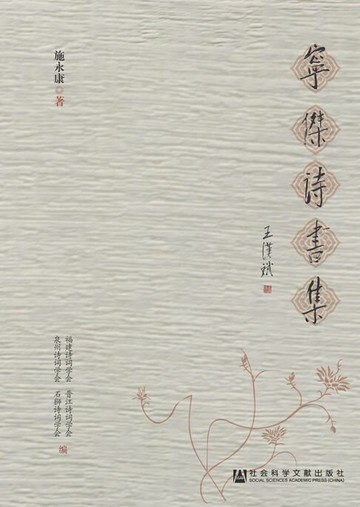 寧傑诗書集
王漢斌
施永康◎著
福建诗词学会 晋江诗词学会
泉州诗词学会 石狮诗词学会
编
社会科学文献出版社
SOCIAL SCIENCES ACADEMIC PRESS (CHINA)